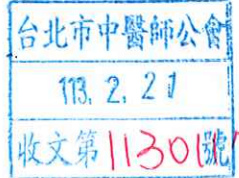 台北市中醫師公會
113. 2. 21
收文第11301號